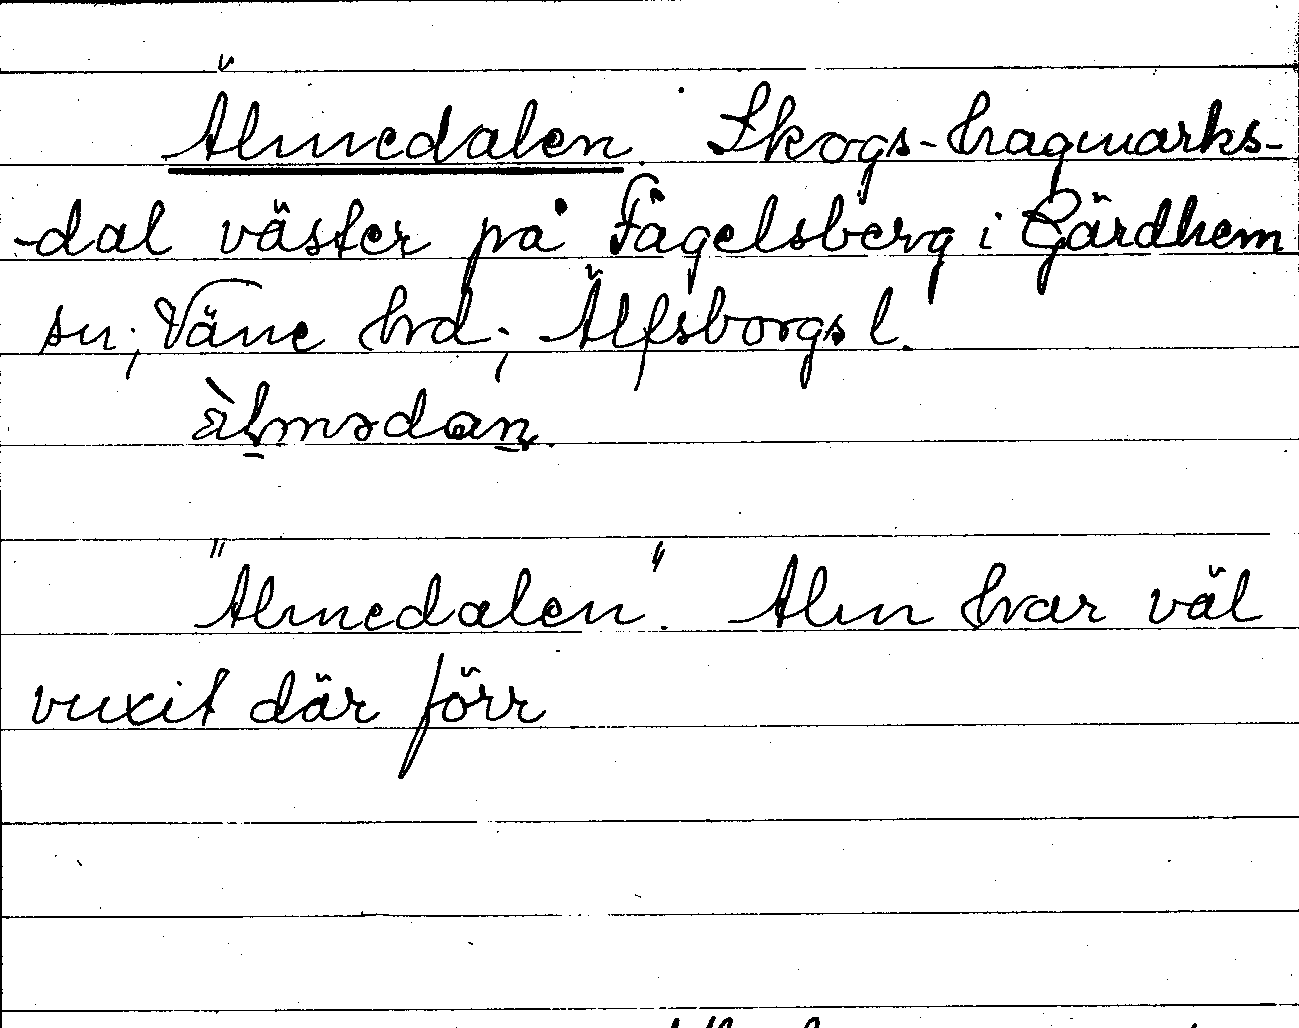 Älmedalen. Skogs-hagmarks-
-dal väster på Fagelsberg i Gärdhem
sn; Väne hrd; Älfsborgs l.
"Almedalen". Alm har väl
vuxit där förr